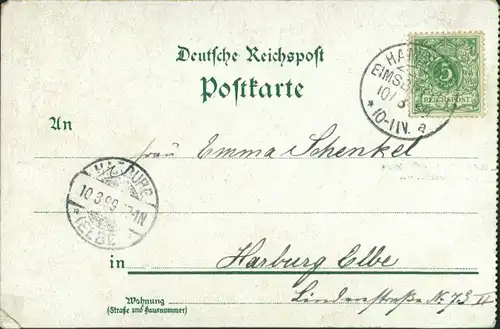 Deutsche Reichspost
Postkarte
HAM
EIMSB
10/3
10-11V. a
5
REICHSPOST
An
Frau Emma Schenkel
HARBURG
10.3.99
ELBE
in Harburg Elbe
Wohnung
(Straße und Hausnummer)
Lindenstraße N. 73 II